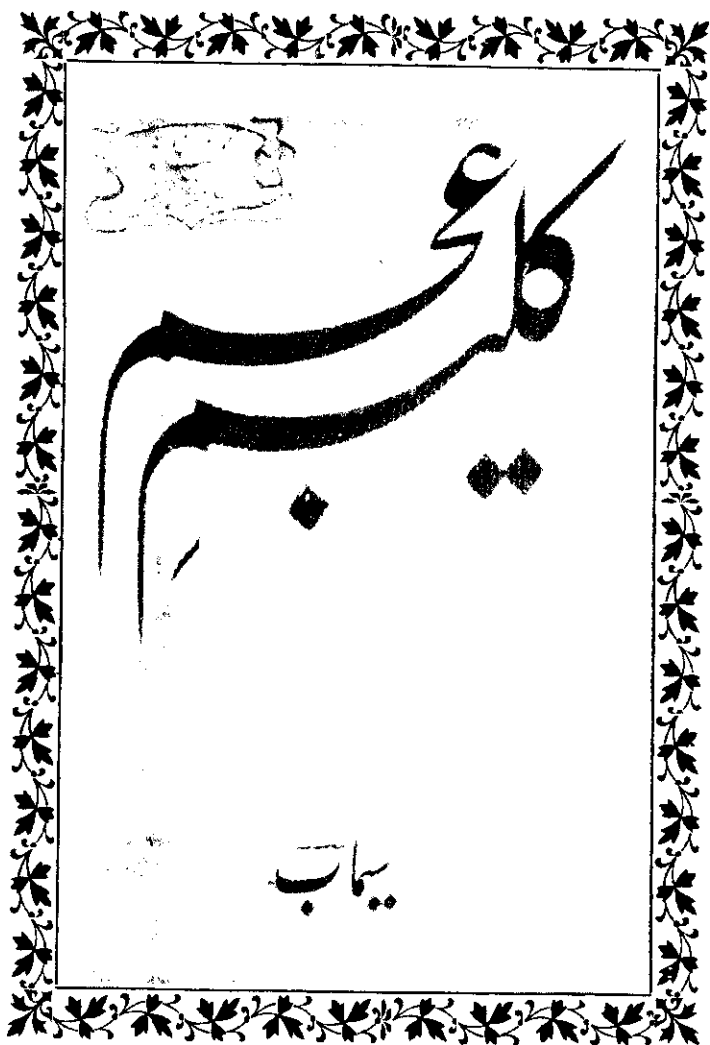 کلیم عجم
سیماب